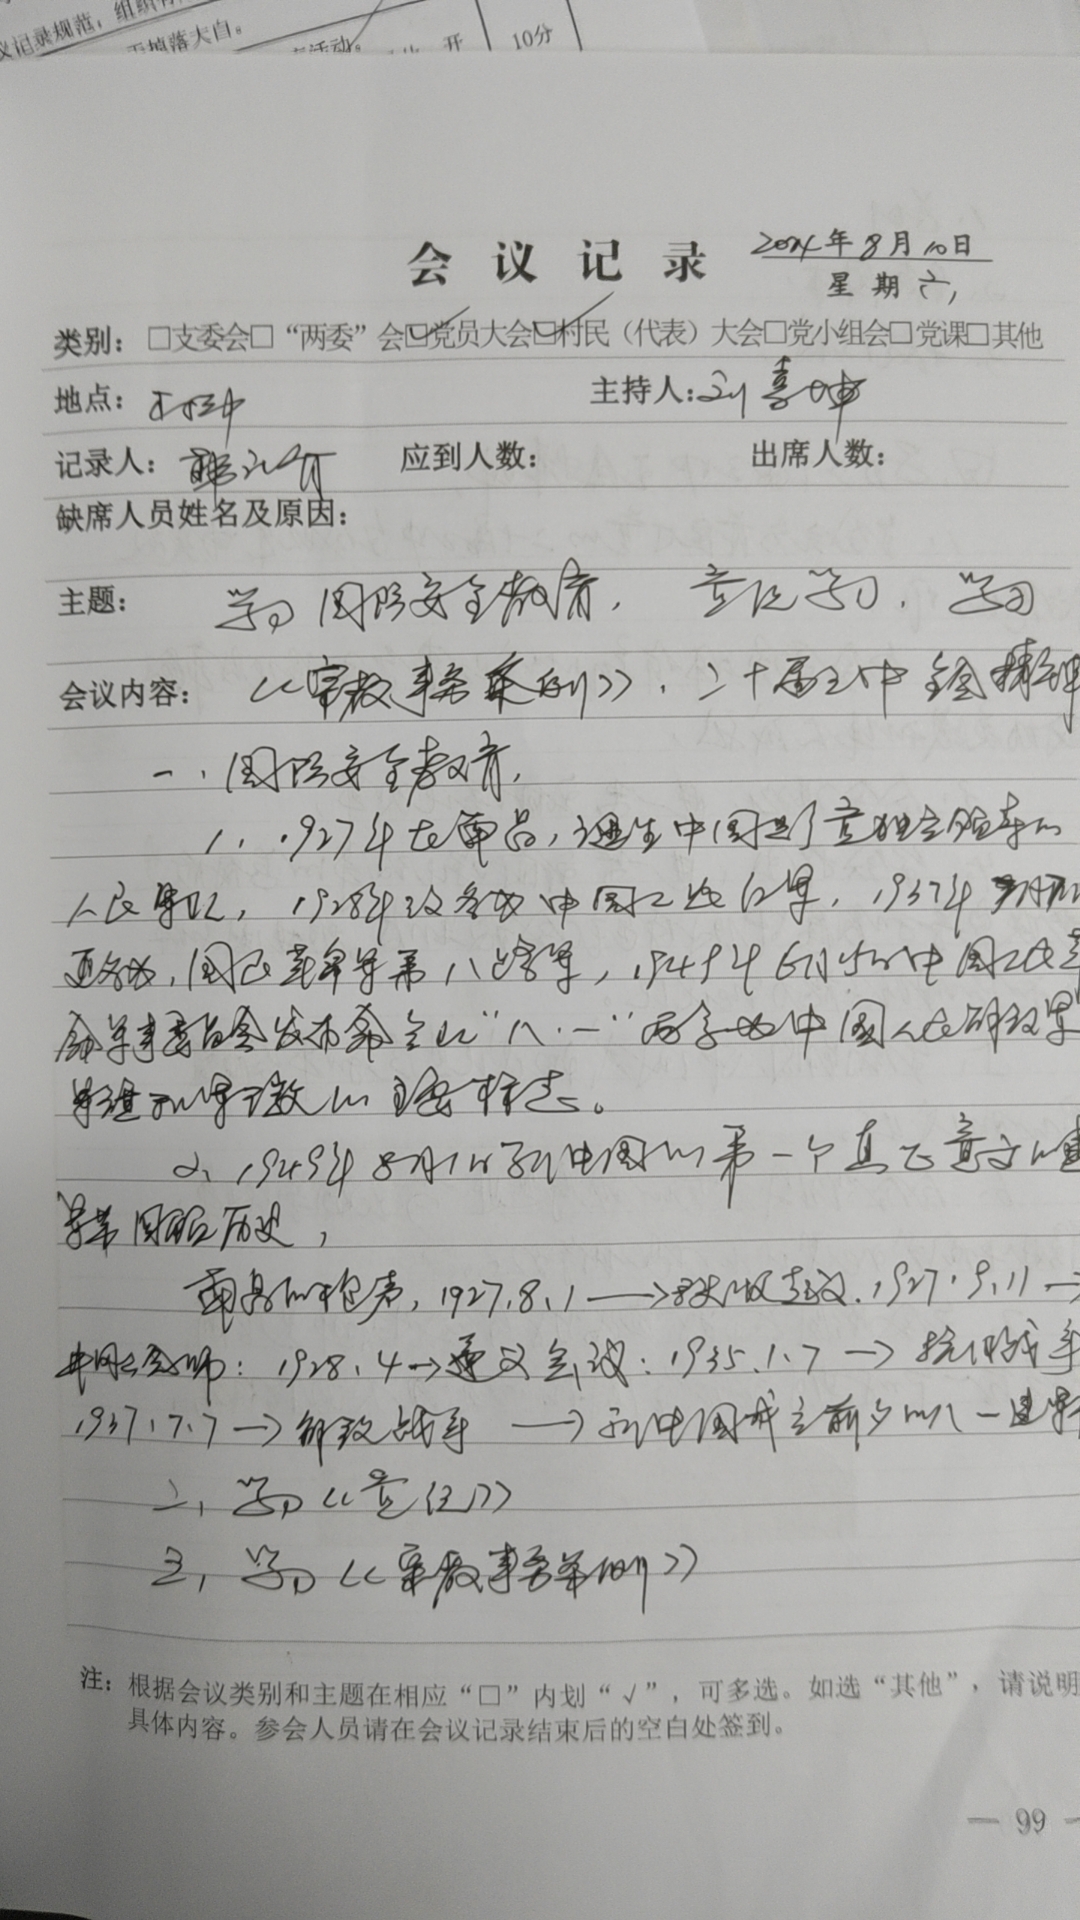 议记录规范，组织有
掉落大自。
活动。 开 10分
会议记录 2024年8月10日
星期六
类别：□支委会□“两委”会☑党员大会☑村民（代表）大会□党小组会□党课□其他
地点： 主持人：刘喜坤
记录人： 应到人数： 出席人数：
缺席人员姓名及原因：
主题： 学习国防安全教育， 学习，学习
会议内容： 《宗教事务条例》，二十届三中全会精神
一、国防安全教育，
1、1927年在南昌，诞生中国共产党独立领导的
人民军队，1928年改名为中国工农红军，1937年
更名为，国民革命军第八路军，1949年6月15日中国人民革
命军事委员会发布命令以“八·一”两字为中国人民解放军
军旗和军徽的主要标志。
2、1949年8月1日新中国的第一个真正意义的建
军节 国防历史，
南昌的枪声，1927.8.1→秋收起义.1927.9.11→
井冈会师：1928.4→遵义会议：1935.1.7→抗日战争
1937.7.7→解放战争 →新中国成立前夕的八一建军
二，学习《 》
三，学习《宗教事务条例》
注：根据会议类别和主题在相应“□”内划“√”，可多选。如选“其他”，请说明
具体内容。参会人员请在会议记录结束后的空白处签到。
— 99 —